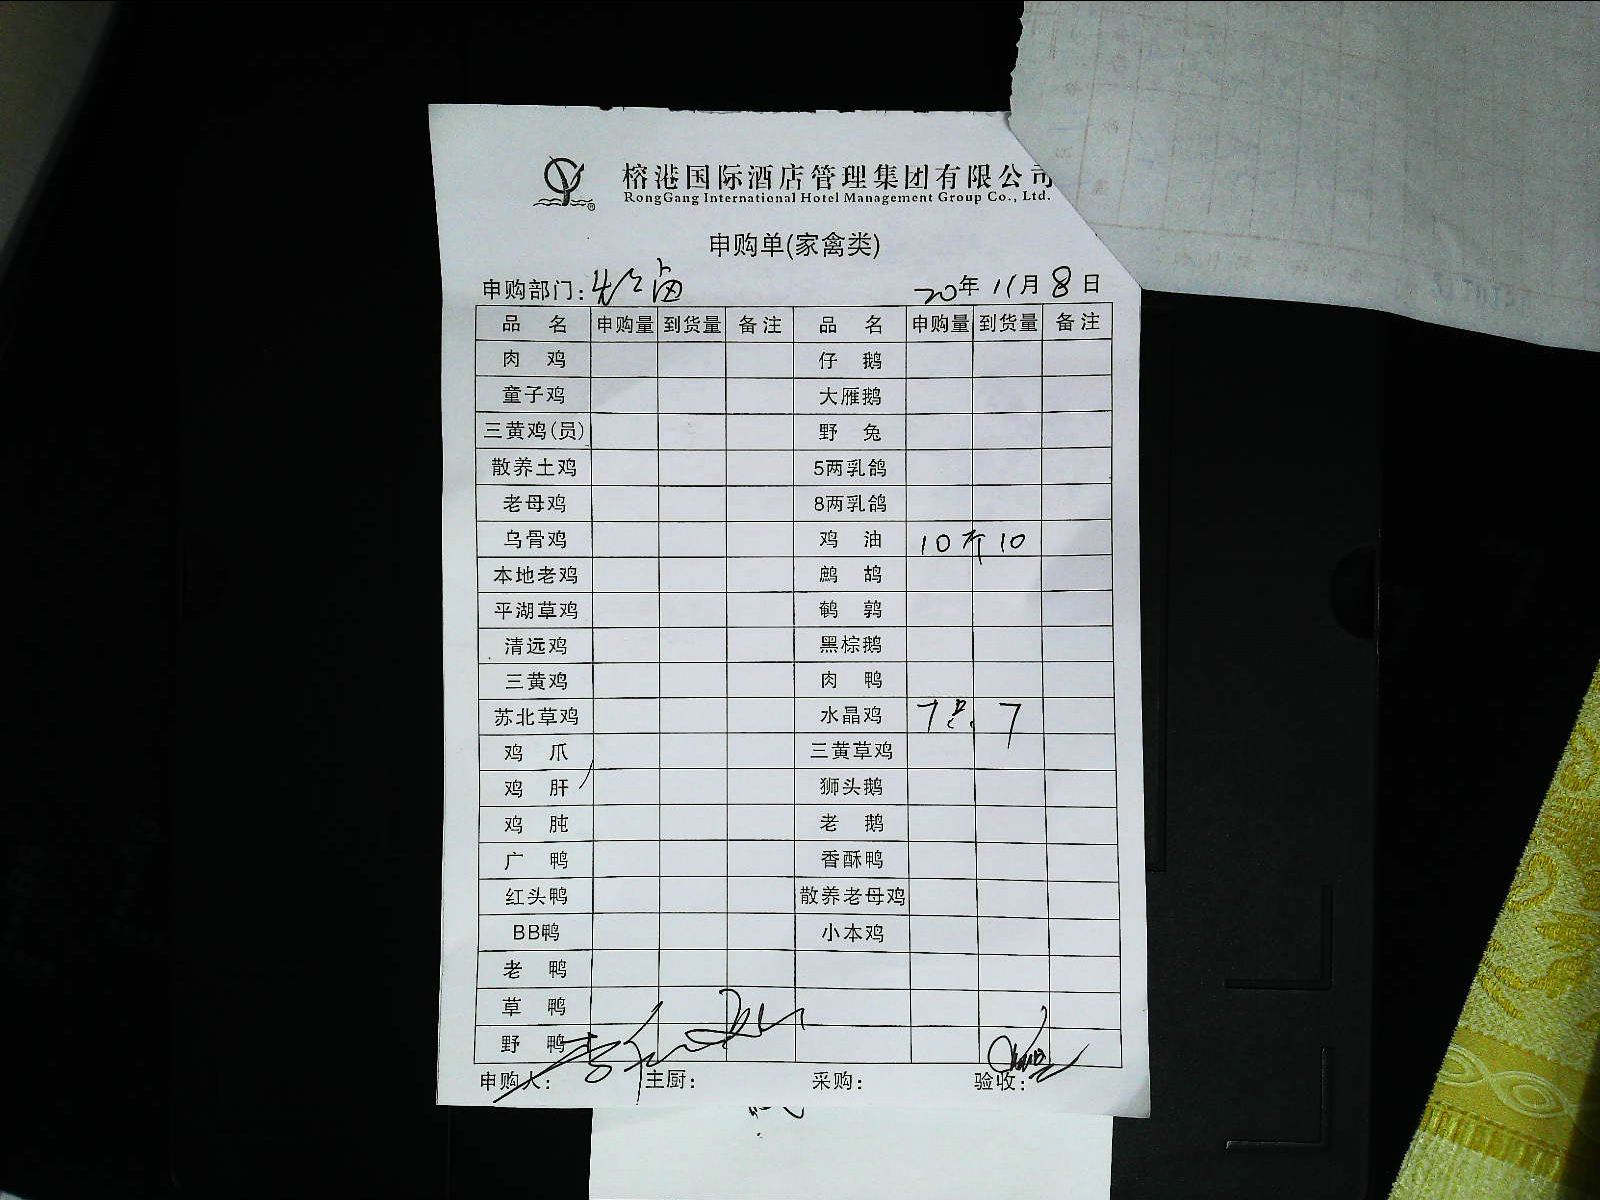 榕港国际酒店管理集团有限公司
RongGang International Hotel Management Group Co., Ltd.
申购单(家禽类)
申购部门: 20年 11月 8日
品 名 申购量 到货量 备注 品 名 申购量 到货量 备注
肉 鸡 仔 鹅
童子鸡 大雁鹅
三黄鸡(员) 野 兔
散养土鸡 5两乳鸽
老母鸡 8两乳鸽
乌骨鸡 鸡 油 10斤 10
本地老鸡 鹧 鸪
平湖草鸡 鹌 鹑
清远鸡 黑棕鹅
三黄鸡 肉 鸭
苏北草鸡 水晶鸡 7只 7
鸡 爪 三黄草鸡
鸡 肝 狮头鹅
鸡 肫 老 鹅
广 鸭 香酥鸭
红头鸭 散养老母鸡
BB鸭 小本鸡
老 鸭
草 鸭
野 鸭
申购人: 主厨: 采购: 验收: